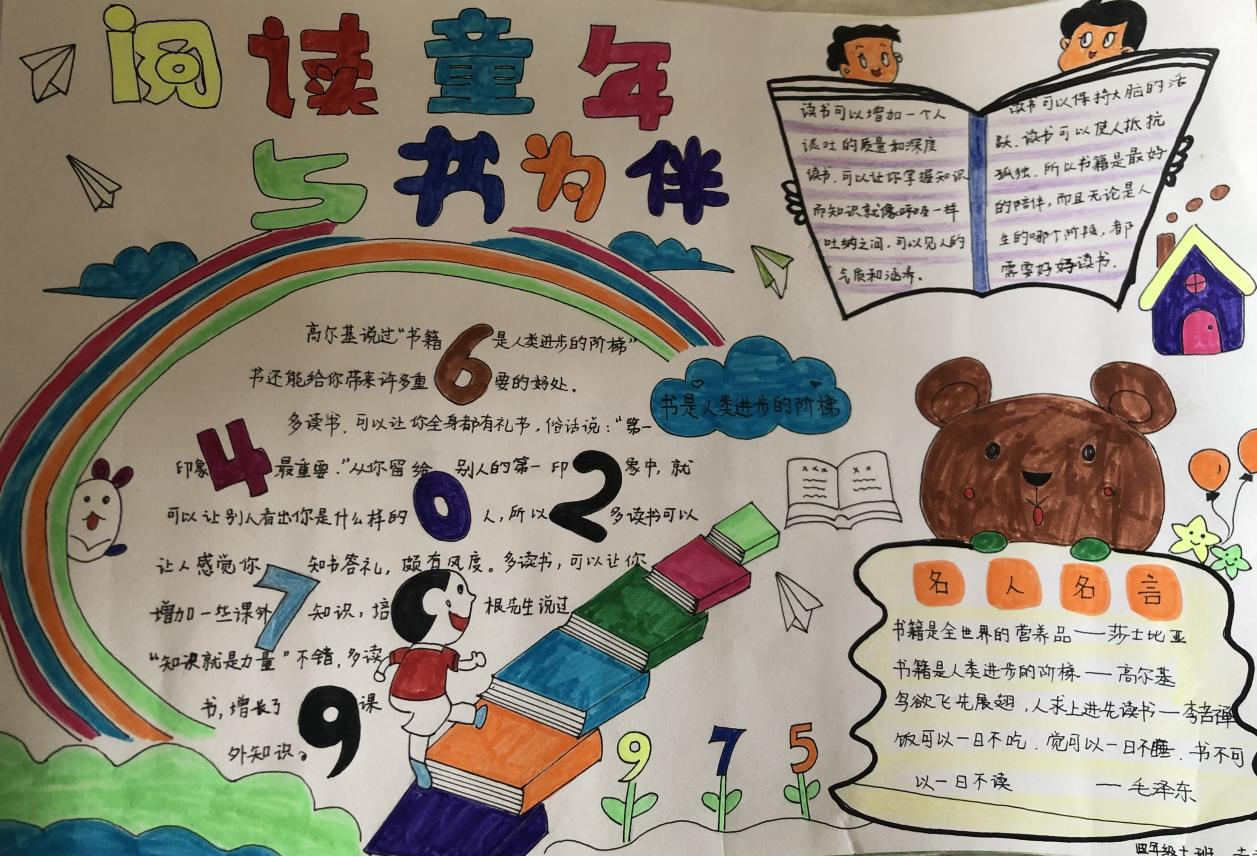 阅读童年
与书为伴
读书可以增加一个人
谈吐的质量和深度
读书,可以让你掌握知识
而知识就像呼吸一样
吐纳之间,可以见人的
气质和涵养。
读书可以保持大脑的活
跃,读书可以使人抵抗
孤独,所以书籍是最好
的陪伴,而且无论是人
生的哪个阶段,都
需要好好读书.
高尔基说过“书籍6是人类进步的阶梯”
书还能给你带来许多重要的好处。
多读书,可以让你全身都有礼节,俗话说:“第一
印象4最重要.”从你留给别人的第一印2象中,就
可以让别人看出你是什么样的0人,所以多读书可以
让人感觉你知书答礼,颇有风度。多读书,可以让你
增加一些课外7知识,培根先生说过
“知识就是力量”不错,多读
书,增长了9课
外知识。
书是人类进步的阶梯
9 7 5
名人名言
书籍是全世界的营养品——莎士比亚
书籍是人类进步的阶梯——高尔基
鸟欲飞先展翅,人求上进先读书—李苦禅
饭可以一日不吃,觉可以一日不睡,书不可
以一日不读 ——毛泽东
四年级七班